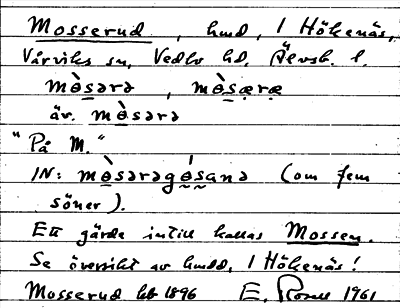 Mosserud, hmd, 1 Hökenäs,
Vårviks sn, Vedbo hd, Älvsb. l.
mòsərə, mòsæræ
äv. mòsərə
"På M."
IN: mòsərəgósana (om fem
söner).
Ett gärde intill kallas Mossen.
Se översikt av hmdd, 1 Hökenäs!
Mosserud lsb 1896 E. 1961